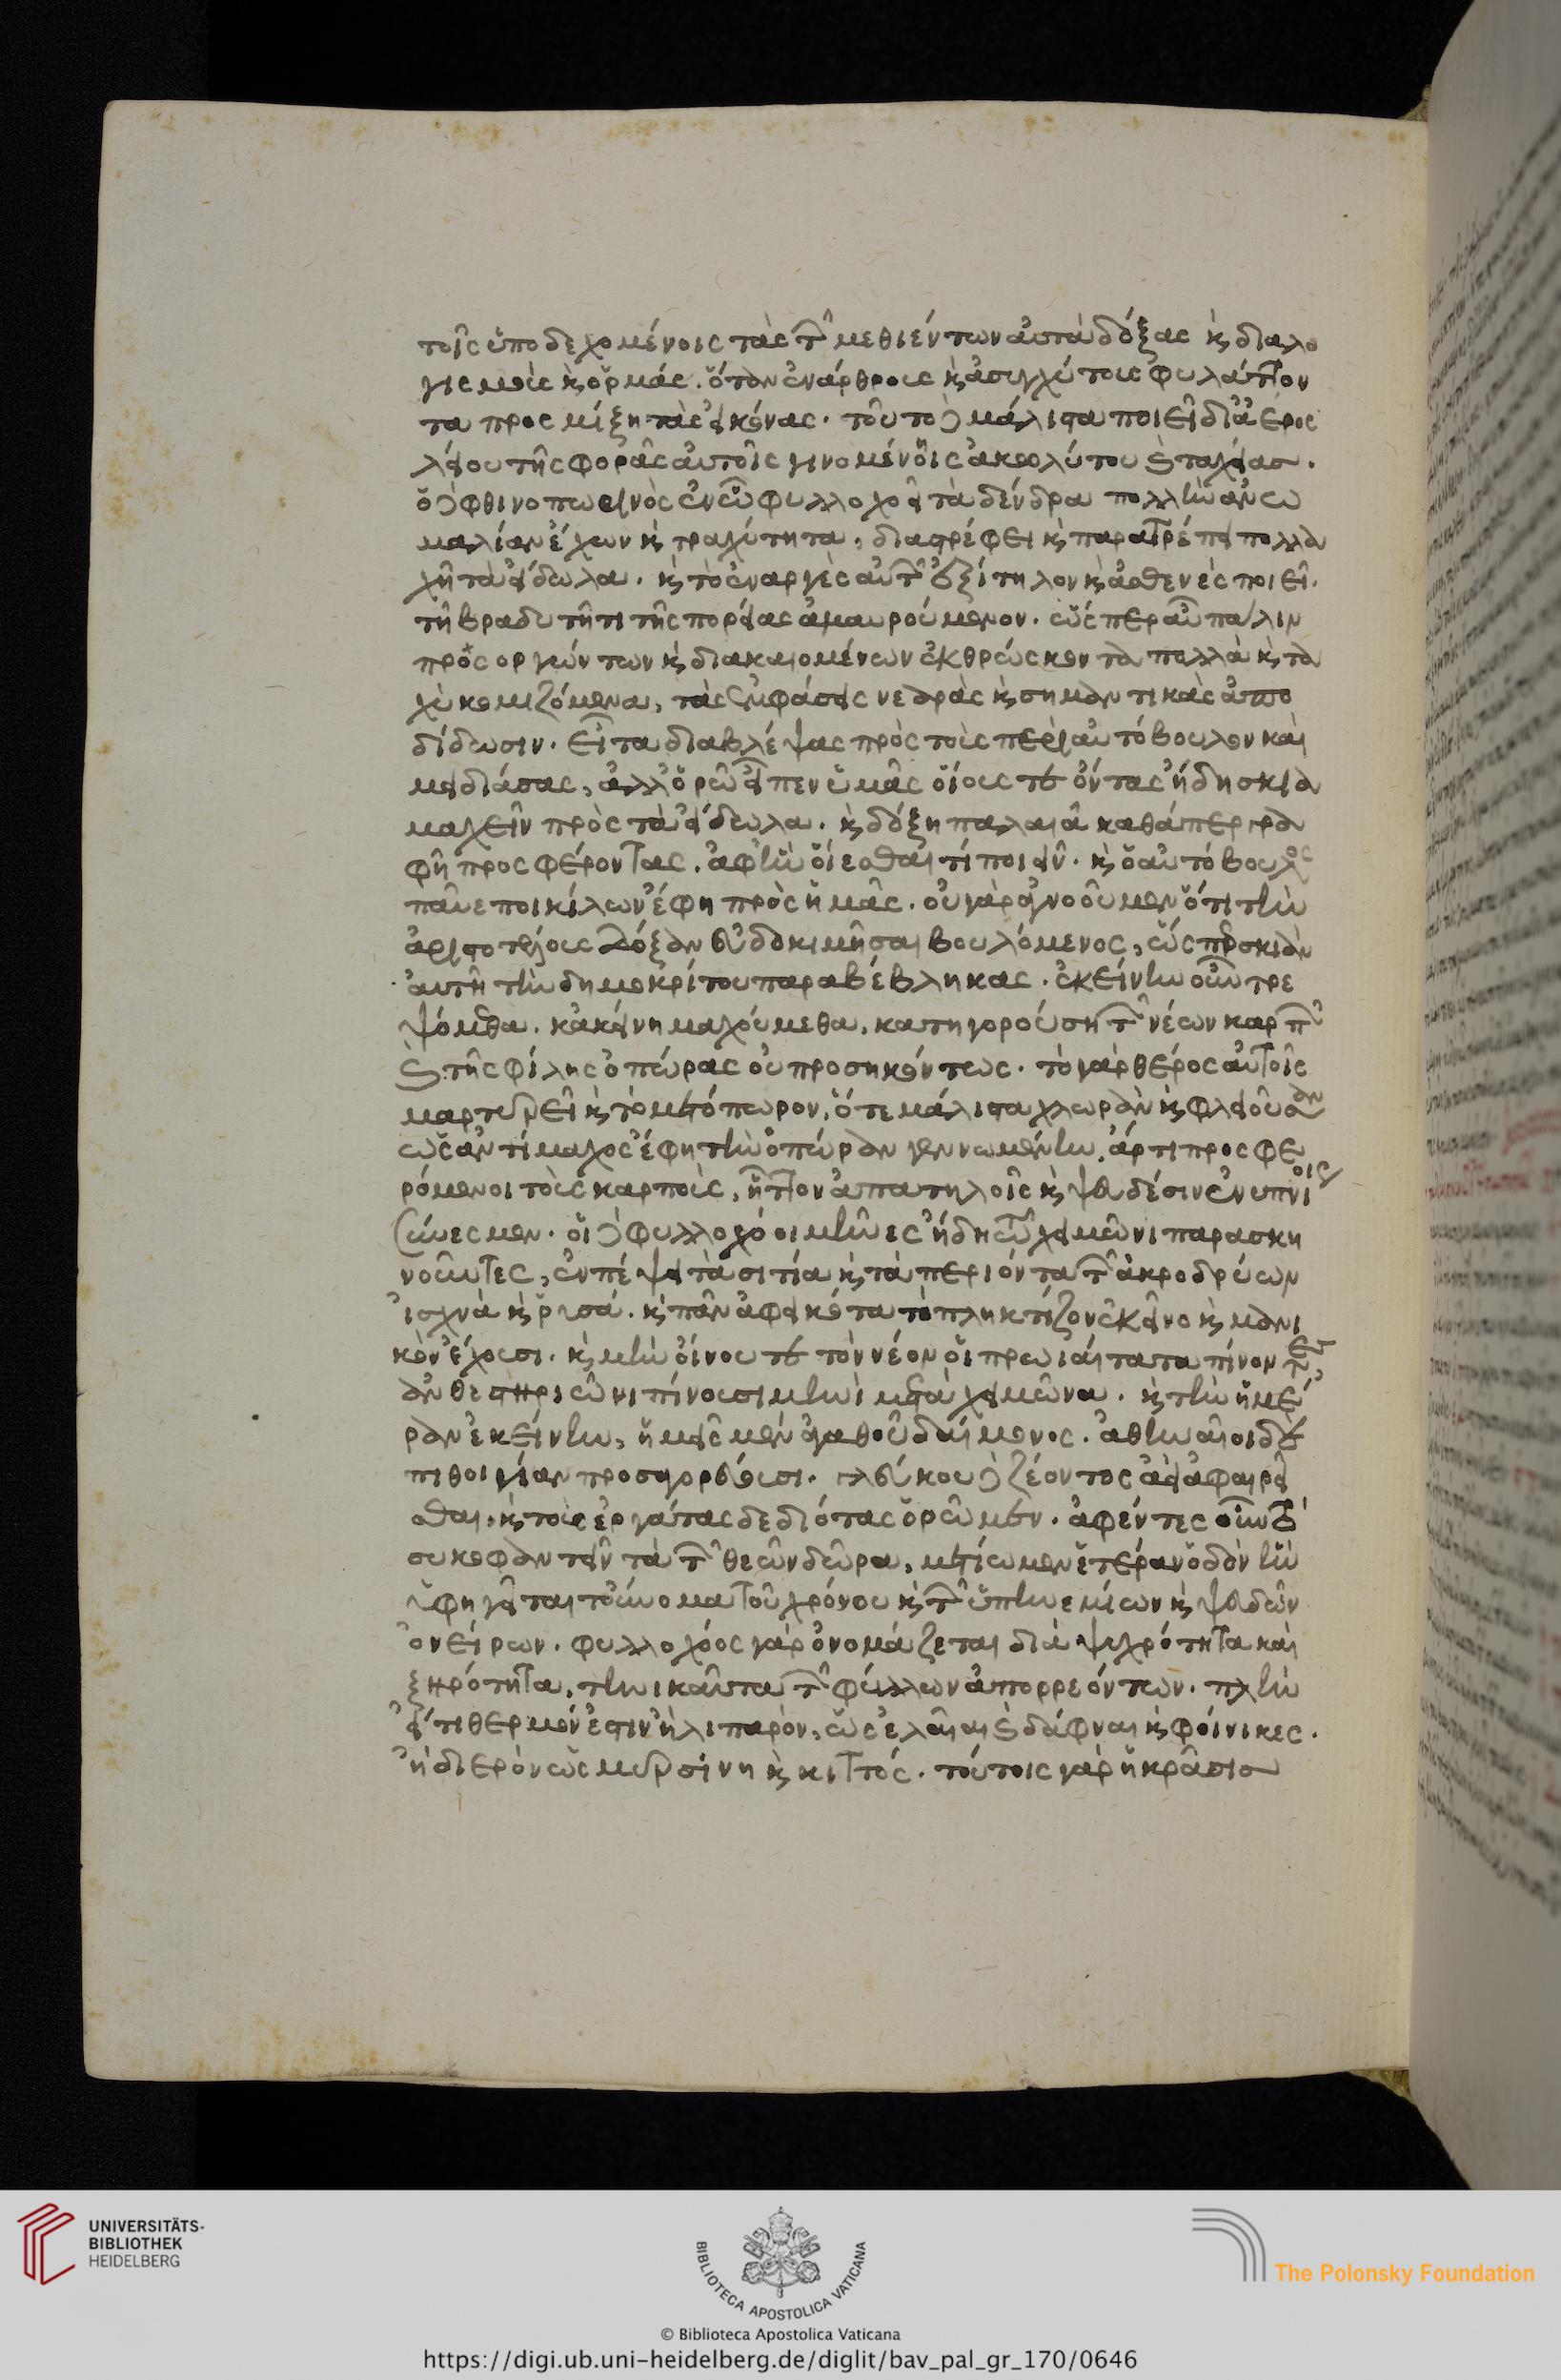 τοῖς ὑποδεχομένοις τὰς τῶν μεθιέντων αὐτὰ δόξας κ̀ διαλο
γισμοὺς κ̀ ὁρμάς. ὅταν ἐνάρθρους κ̀ ἀσυγχύτους φυλάττον
τα προσμίξη τὰς εἰκόνας. τοῦτο δὲ μάλιστα ποιεῖ δι' ἀέρος
λείου τῆς φορᾶς αὐτοῖς γινομένοις ἀκωλύτου κ̀ ταχείασ.
ὁ δὲ φθινοπωρινὸς ἐν ὧ φυλλοχοεῖ τὰ δένδρα πολλὴν ἀνω
μαλίαν ἔχων κ̀ τραχύτητα, διαστρέφει κ̀ παρατρέπει πολλα
χῆ τὰ εἴδωλα. κ̀ τὸ ἐναργὲς αὐτῶν ἐξίτηλον κ̀ ἀσθενὲς ποιεῖ.
τῆ βραδυτῆτι τῆς πορείας ἀμαυρούμενον. ὥσπερ αὖ πάλιν
πρὸς ὀργώντων κ̀ διακαιομένων ἐκθρώσκοντα πολλὰ κ̀ τα
χὺ κομιζόμενα, τὰς ἐμφάσεις νεαρὰς κ̀ σημαντικὰς ἀπο
δίδωσιν. εἶτα διαβλέψας πρὸς τοὺς περὶ αὐτόβουλον καὶ
μειδιάσας, ἀλλ' ὁρῶ εἶπεν ὑμᾶς οἵους τε ὄντας ἤδη σκια
μαχεῖν πρὸς τὰ εἴδωλα. κ̀ δόξη παλαιᾶ καθάπερ γρα
φῆ προσφέροντας. ἀφ' ἣν οἴεσθαί τι ποιεῖν. κ̀ ὁ αὐτόβουλος
παῦε ποικίλων ἔφη πρὸς ἡμᾶς. οὐ γὰρ ἀγνοοῦμεν ὅτι τὴν
ἀριστοτέλους δόξαν εὐδοκιμῆσαι βουλόμενος, ὡς πρ σκιὰν
αὐτῆ τὴν δημοκρίτου παραβέβληκας. ἐκείνην οὖν τρε
ψόμεθα. κἀκείνη μαχόυμεθα, κατηγορούση τῶν νέων καρπῶν
κ̀ τῆς φίλης ὀπώρας οὐ προσηκόντως. τὸ γὰρ θέρος αὐτοῖς
μαρτυρεῖ κ̀ τὸ μετόπωρον, ὅτε μάλιστα χλωρὰν κ̀ φλείουσαν
ὡς ἀντίμαχος ἔφη τὴν ὀπώραν γεννωμένην. ἄρτι προσφε
ρόμενοι τοὺς καρποὺς, ἧττον ἀπατηλοῖς κ̀ ψευδέσιν ἐνυπνίοις
σύνεσμεν. οἱ δὲ φυλλοχόοι μῆνες ἤδη τῶ χειμῶνι παρασκη
νοῦντες, ἐν πέψει τὰ σιτία κ̀ τὰ περιόντα τῶν ἀκροδρύων
ἰσχνὰ κ̀ ῥυσά. κ̀ πᾶν ἀφεικότα τὸ πληκτίζον ἐκεῖνο κ̀ μανι
κὸν ἔχουσι. κ̀ μὴν οἴνου τε τὸν νέον οἱ πρωιαίτατα πίνοντες
ἀνθεστηριῶνι πίνουσι μηνὶ μετὰ χειμῶνα. κ̀ τὴν ἡμέ
ραν ἐκείνην, ἡμεῖς μὲν ἀγαθοῦ δαίμονος. ἀθηναῖοι δὲ
πιθοιγίαν προσαγορεύουσι. γλεύκους δὲ ζέοντος ἀεὶ ἀφαιρεῖ
σθαι κ̀ τοὺς ἐργάτας δεδιότας ὁρῶμεν. ἀφέντες οὖν τὸ
συκοφαντεῖν τὰ τῶν θεῶν δῶρα, μετίωμεν ἑτέραν ὁδὸν ἣν
ὑφηγεῖται τοὔνομα τοῦ χρόνου κ̀ τῶν ὑπηνεμίων κ̀ ψευδῶν
ὀνείρων. φυλλοχόος γὰρ ὀνομάζεται διὰ ψυχρότητα καὶ
ξηρότητα, τηνικαῦτα τῶν φύλλων ἀπορρεόντων. πλὴν
εἴ τι θερμόν ἐστιν ἢ λιπαρὸν, ὡς ἐλαῖαι κ̀ δάφναι κ̀ φοίνικες.
ἢ διερὸν ὡς μυρσίνη κ̀ κιττός. τούτοις γὰρ ἡ κρᾶσισ
UNIVERSITÄTS-
BIBLIOTHEK
HEIDELBERG
BIBLIOTECA APOSTOLICA VATICANA
The Polonsky Foundation
© Biblioteca Apostolica Vaticana
https://digi.ub.uni-heidelberg.de/diglit/bav_pal_gr_170/0646